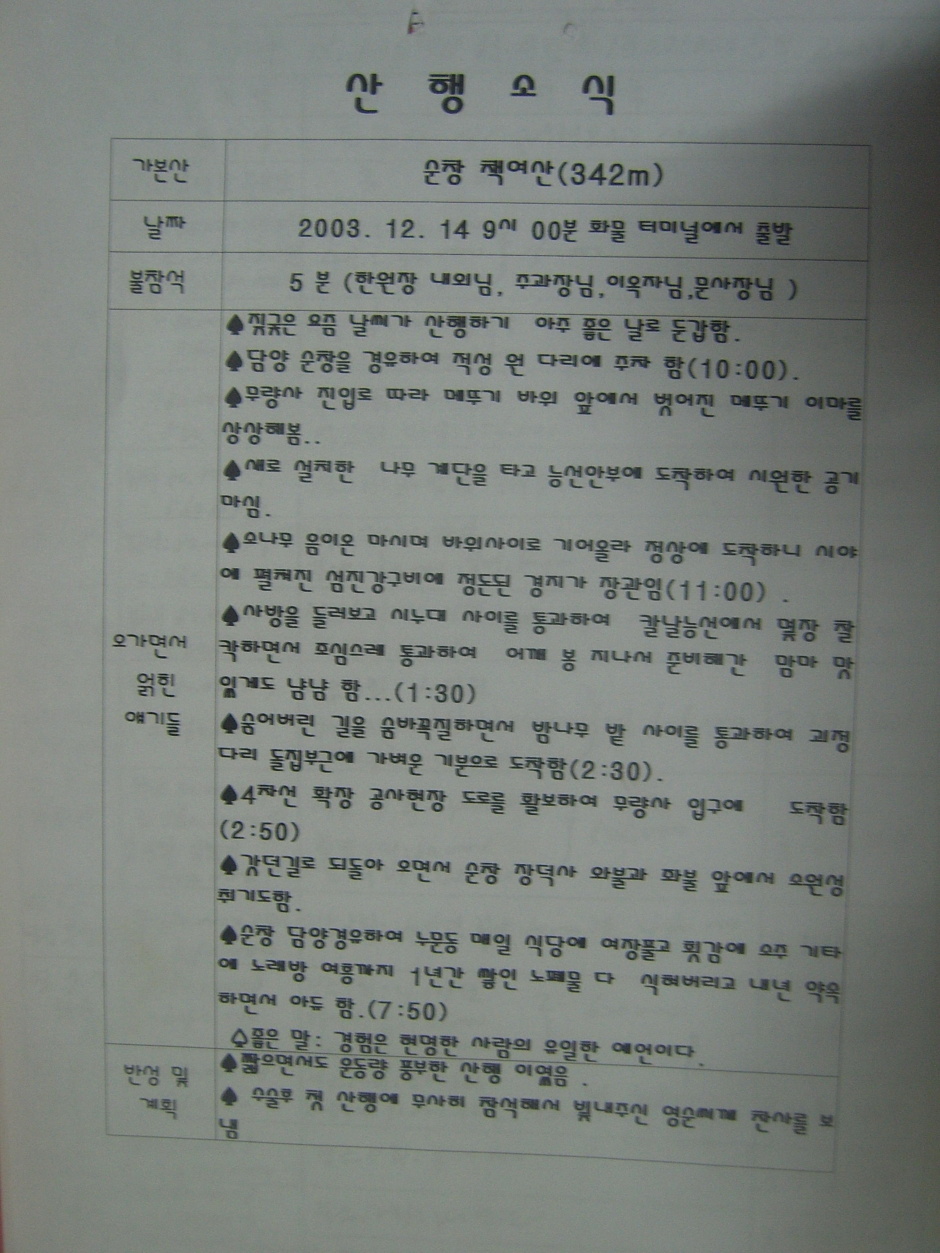 산 행 소 식
가본산
순창 책여산(342m)
날짜
2003. 12. 14 9시 00분 화물 터미널에서 출발
불참석
5 분 (한원장 내외님, 주과장님,이옥자님,문사장님 )
오가면서
얽힌
얘기들
♠짖궂은 요즘 날씨가 산행하기 아주 좋은 날로 둔갑함.
♠담양 순창을 경유하여 적성 원 다리에 주차 함(10:00).
♠무량사 진입로 따라 메뚜기 바위 앞에서 벗어진 메뚜기 이마를
상상해봄..
♠새로 설치한 나무 계단을 타고 능선안부에 도착하여 시원한 공기
마심.
♠소나무 음이온 마시며 바위사이로 기어올라 정상에 도착하니 시야
에 펼쳐진 섬진강구비에 정돈된 경지가 장관임(11:00) .
♠사방을 둘러보고 시누대 사이를 통과하여 칼날능선에서 몇장 찰
칵하면서 조심스레 통과하여 어깨 봉 지나서 준비해간 맘마 맛
있게도 냠냠 함...(1:30)
♠숨어버린 길을 숨바꼭질하면서 밤나무 밭 사이를 통과하여 괴정
다리 돌집부근에 가벼운 기분으로 도착함(2:30).
♠4차선 확장 공사현장 도로를 활보하여 무량사 입구에 도착함
(2:50)
♠갔던길로 되돌아 오면서 순창 장덕사 와불과 화불 앞에서 소원성
취기도함.
♠순창 담양경유하여 누문동 매일 식당에 여장풀고 횟감에 소주 기타
에 노래방 여흥까지 1년간 쌓인 노폐물 다 식혀버리고 내년 약속
하면서 아듀 함.(7:50)
♤좋은 말: 경험은 현명한 사람의 유일한 예언이다.
반성 및
계획
♠짧으면서도 운동량 풍부한 산행 이였음 .
♠ 수술후 첫 산행에 무사히 참석해서 빛내주신 영순씨께 찬사를 보
냄